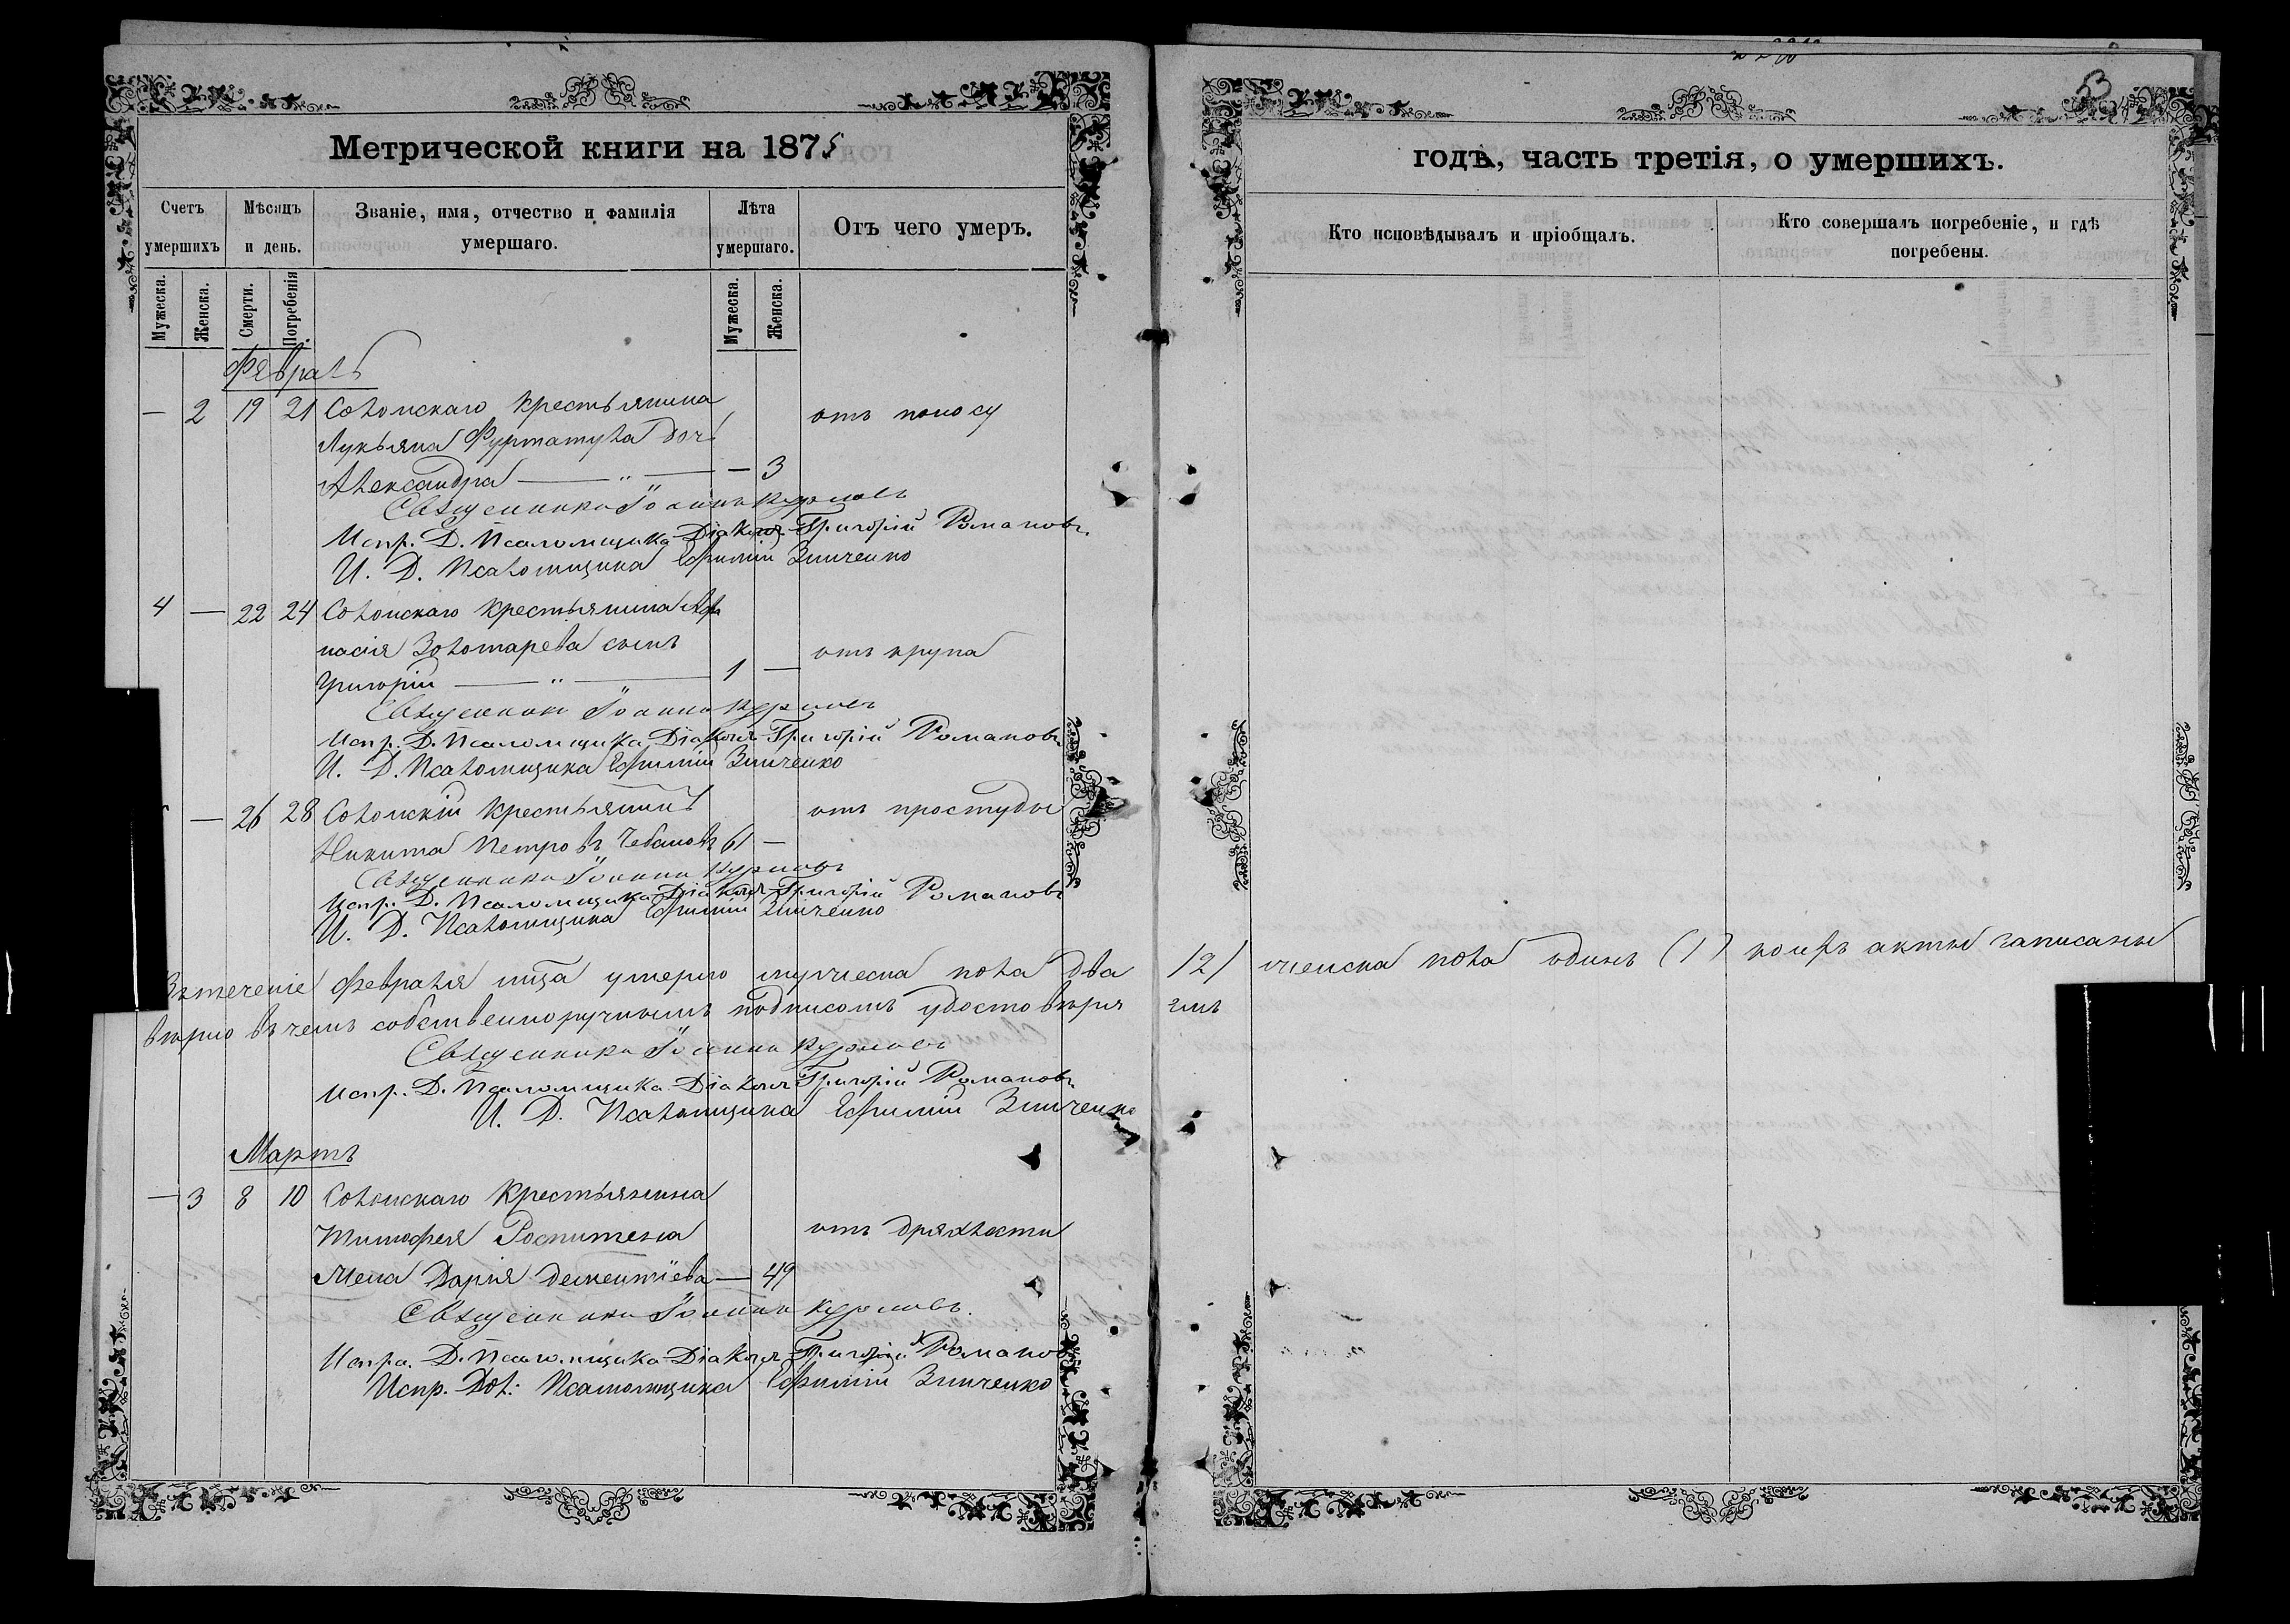 Метрической книги на 1875
годъ, часть третія, о умершихъ.
Счетъ умершихъ
Мѣсяцъ и день.
Званіе, имя, отчество и фамилія умершаго.
Лѣта умершаго.
Отъ чего умеръ.
Кто исповѣдывалъ и пріобщалъ.
Кто совершалъ погребеніе, и гдѣ погребены.
Мужеска.
Женска.
Смерти.
Погребенія
Мужеска.
Женска.
Февраль
— 2 19 21 Солонскаго крестьянина отъ поносу
Лукьяна дочь
Александра — " — — 3
Священникъ Іоаннъ
Испр. Д. Псаломщика Діаконъ Григорій Романовъ
И. Д. Псаломщика Ефимій Зинченко
4 — 22 24 Солонскаго крестьянина Афа
насія Золотарева сынъ отъ крупа
Григорій — " — 1 —
Священникъ Іоаннъ
Испр. Д. Псаломщика Діаконъ Григорій Романовъ
И. Д. Псаломщика Ефимій Зинченко
— 26 28 Солонскій крестьянинъ отъ простуды
Никита Петровъ Чебановъ 61 —
Священникъ Іоаннъ
Испр. Д. Псаломщика Діаконъ Григорій Романовъ
И. Д. Псаломщика Ефимій Зинченко
Въ теченіе февраля мца умерло мужеска пола два /2/ женска пола одинъ (1) акты записаны
вѣрно въ чемъ собственноручнымъ подписомъ удостовѣря емъ
Священникъ Іоаннъ
Испр. Д. Псаломщика Діаконъ Григорій Романовъ
И. Д. Псаломщика Ефимій Зинченко
Мартъ
— 3 8 10 Солонскаго крестьянина
Тимофея отъ дряхлости
жена Дарія Дементіева — 49
Священникъ Іоаннъ
Испра. Д. Псаломщика Діаконъ Григорій Романовъ
Испр. Дол: Псаломщика Ефимій Зинченко